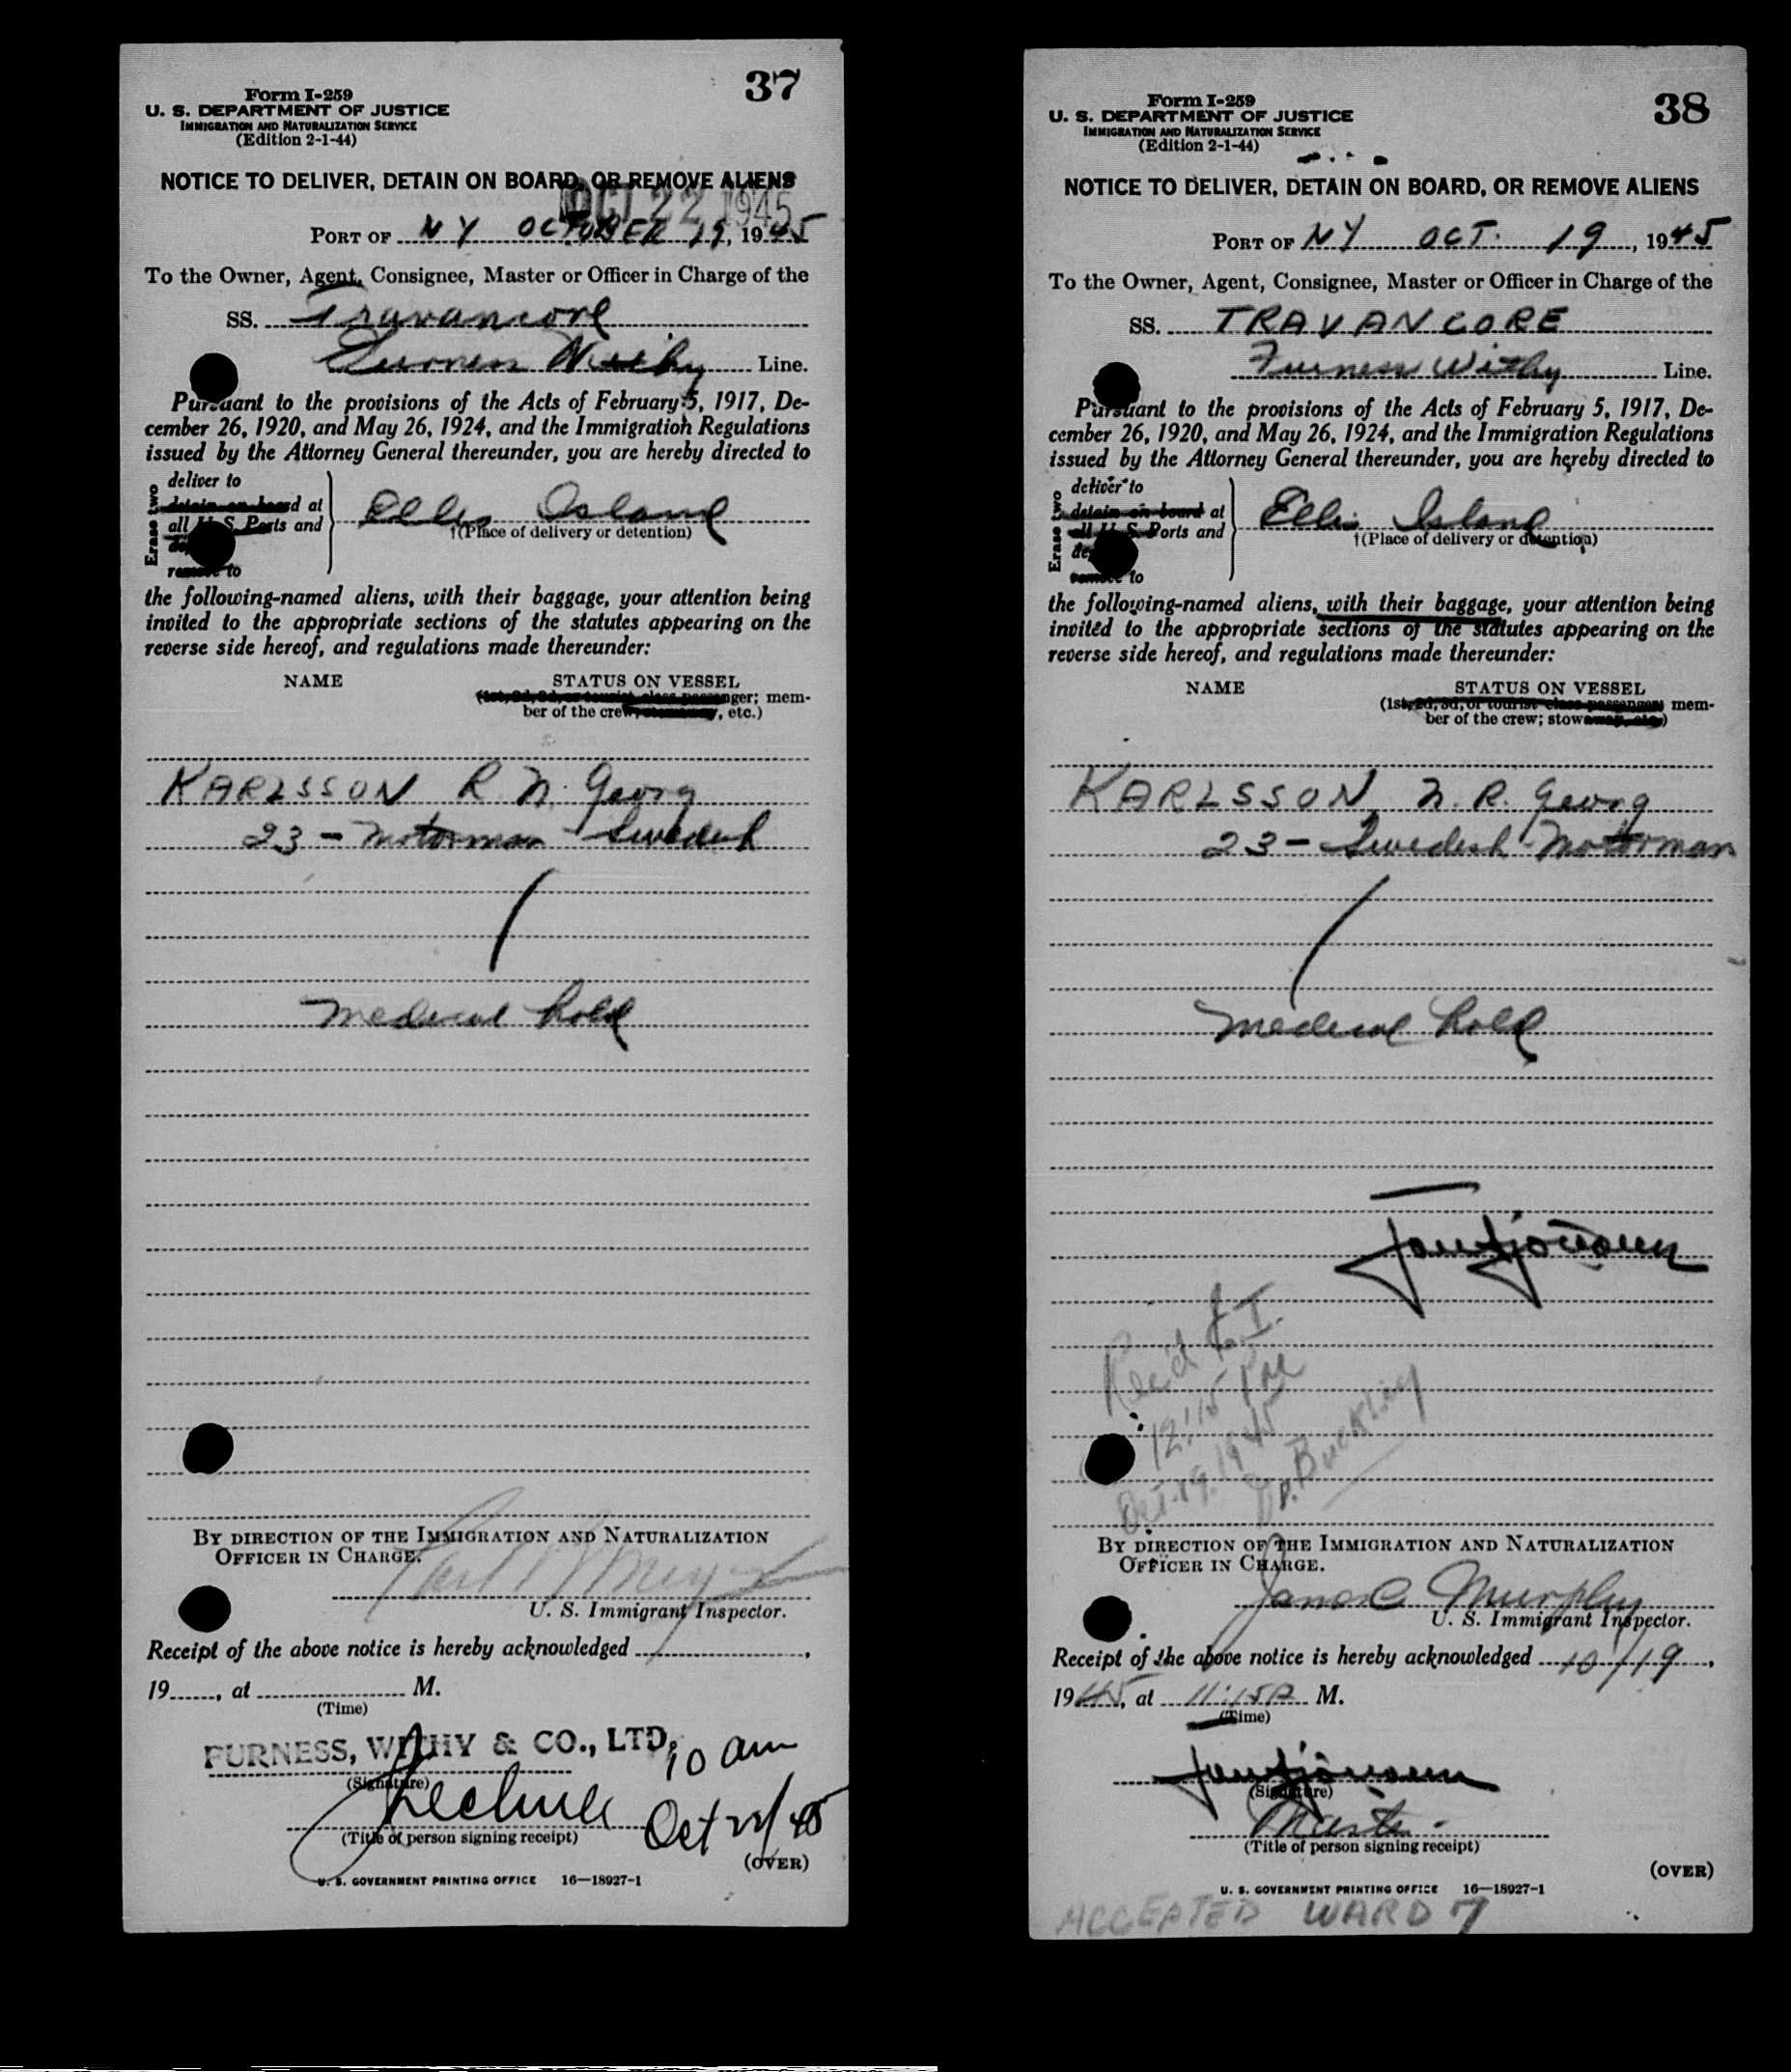 37
Form I-259
U. S. DEPARTMENT OF JUSTICE
IMMIGRATION AND NATURALIZATION SERVICE
(Edition 2-1-44)
NOTICE TO DELIVER, DETAIN ON BOARD, OR REMOVE ALIENS
OCT 22 1945
PORT OF NY OCTOBER 19, 1945
To the Owner, Agent, Consignee, Master or Officer in Charge of the
SS. Travancore
Furness Withy Line.
Pursuant to the provisions of the Acts of February 5, 1917, De-
cember 26, 1920, and May 26, 1924, and the Immigration Regulations
issued by the Attorney General thereunder, you are hereby directed to
Erase two
deliver to
detain on board at
all U. S. Ports and
remove to
Ellis Island
†(Place of delivery or detention)
the following-named aliens, with their baggage, your attention being
invited to the appropriate sections of the statutes appearing on the
reverse side hereof, and regulations made thereunder:
NAME STATUS ON VESSEL
(1st, 2d, 3d, or tourist class passenger; mem-
ber of the crew; stowaway, etc.)
KARLSSON R. N. Georg
23 - Motorman - Swedish
Medical hold
BY DIRECTION OF THE IMMIGRATION AND NATURALIZATION
OFFICER IN CHARGE.
U. S. Immigrant Inspector.
Receipt of the above notice is hereby acknowledged ,
19 , at M.
(Time)
FURNESS, WITHY & CO., LTD.
10 am
(Signature)
Oct 22/45
(Title of person signing receipt)
(OVER)
U. S. GOVERNMENT PRINTING OFFICE 16—18927-1
38
Form I-259
U. S. DEPARTMENT OF JUSTICE
IMMIGRATION AND NATURALIZATION SERVICE
(Edition 2-1-44)
NOTICE TO DELIVER, DETAIN ON BOARD, OR REMOVE ALIENS
PORT OF NY OCT. 19, 1945
To the Owner, Agent, Consignee, Master or Officer in Charge of the
SS. TRAVANCORE
Furness Withy Line.
Pursuant to the provisions of the Acts of February 5, 1917, De-
cember 26, 1920, and May 26, 1924, and the Immigration Regulations
issued by the Attorney General thereunder, you are hereby directed to
Erase two
deliver to
detain on board at
all U. S. Ports and
remove to
Ellis Island
†(Place of delivery or detention)
the following-named aliens, with their baggage, your attention being
invited to the appropriate sections of the statutes appearing on the
reverse side hereof, and regulations made thereunder:
NAME STATUS ON VESSEL
(1st, 2d, 3d, or tourist class passenger; mem-
ber of the crew; stowaway, etc.)
KARLSSON, N. R. Georg
23 - Swedish - Motorman
Medical hold
Rec'd E.I.
12:15 PM
Oct. 19, 1945
Buckley
BY DIRECTION OF THE IMMIGRATION AND NATURALIZATION
OFFICER IN CHARGE.
James C Murphy
U. S. Immigrant Inspector.
Receipt of the above notice is hereby acknowledged 10/19,
1945, at 11:15A M.
(Time)
(Signature)
Master
(Title of person signing receipt)
(OVER)
U. S. GOVERNMENT PRINTING OFFICE 16—18927-1
ACCEPTED WARD 7